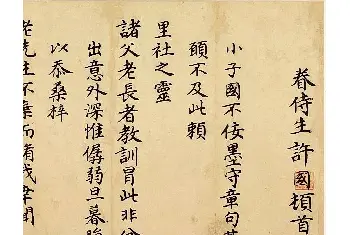 眷侍生許國頓首
小子國不佞墨守章句
頭不及此賴
里社之靈
諸父老長者教訓冒此非
出意外深惟孱弱旦暮
以忝桑梓
老先生不棄而